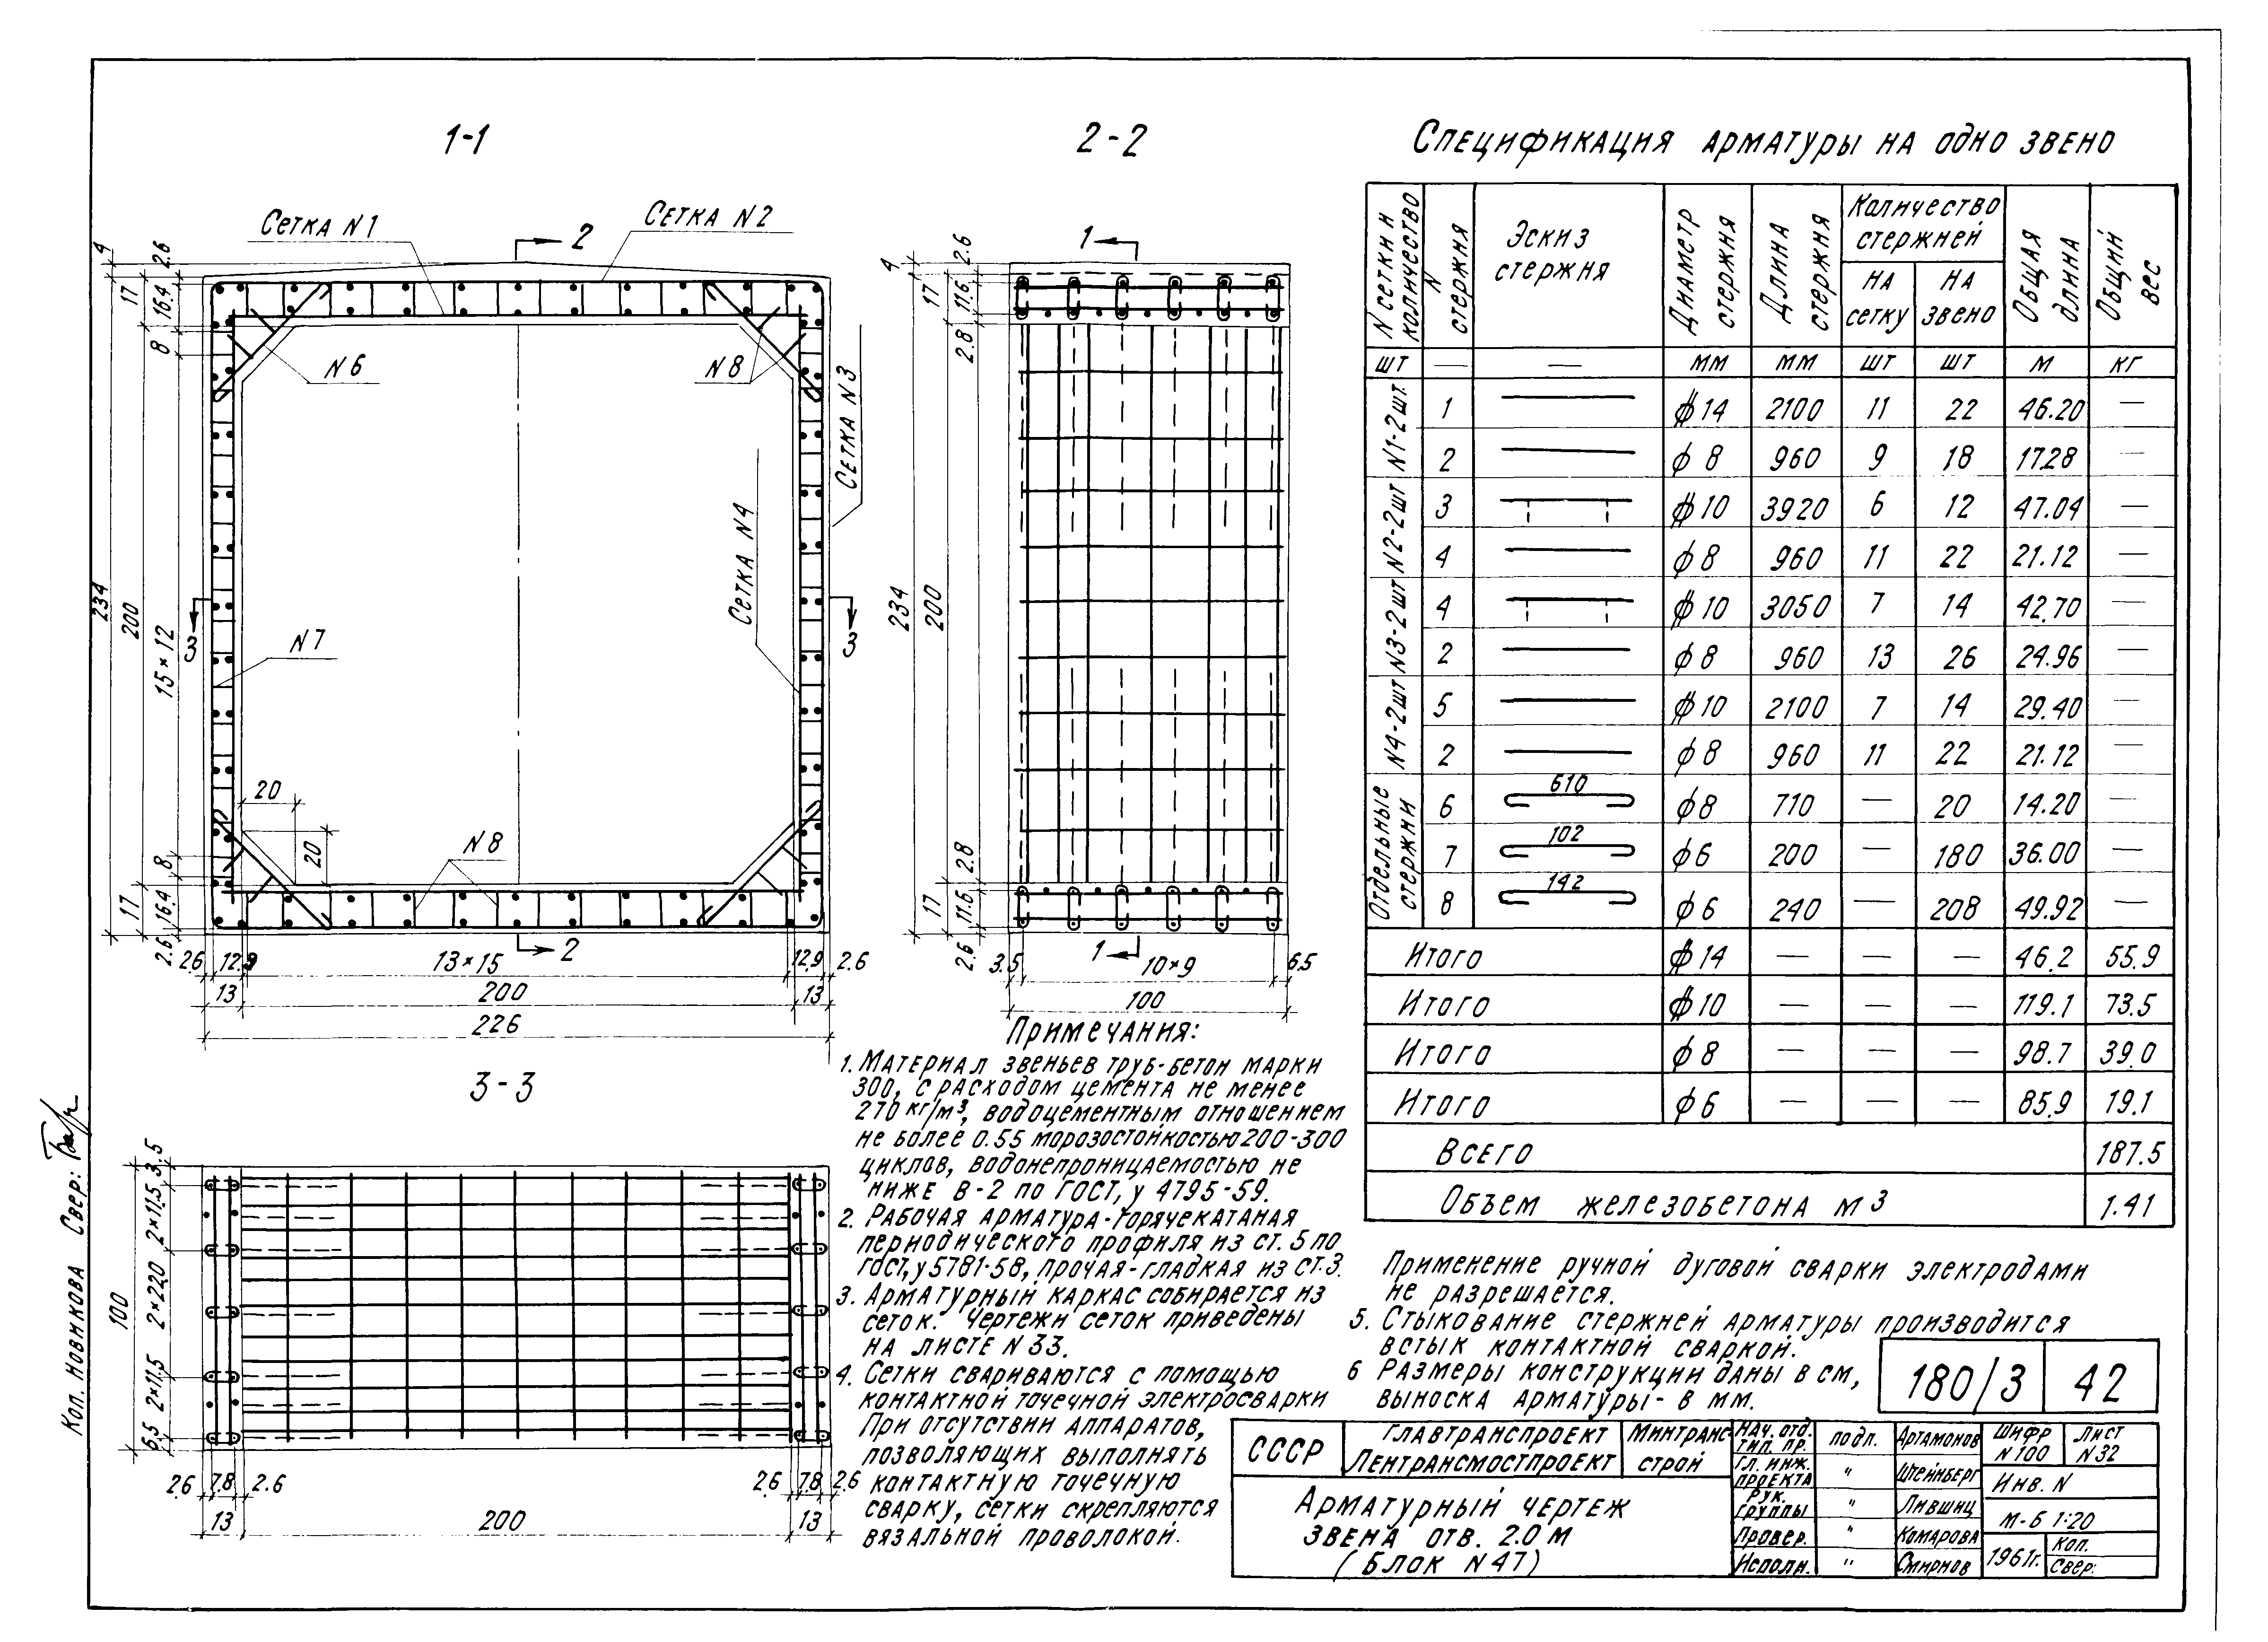 1-1
Сетка N1
Сетка N2
2
4
2.6
17
16.4
8
N6
N8
Сетка N3
Сетка N4
234
200
15×12
3
3
N7
20
20
N8
8
17
16.4
2.6
2
2.6
12.9
13×15
12.9
2.6
13
200
13
226
2-2
1
4
2.6
17
11.6
2.8
234
200
2.8
17
11.6
2.6
1
3.5
10×9
6.5
100
3-3
3.5
2×11.5
2×220
2×11.5
6.5
100
2.6
7.8
2.6
2.6
7.8
2.6
13
200
13
Спецификация арматуры на одно звено
N сетки и количество
N стержня
Эскиз стержня
Диаметр стержня
Длина стержня
Количество стержней
на сетку
на звено
Общая длина
Общий вес
шт — — мм мм шт шт м кг
N1-2шт.
1 ⌀14 2100 11 22 46.20 —
2 ϕ8 960 9 18 17.28 —
N2-2шт
3 ⌀10 3920 6 12 47.04 —
4 ϕ8 960 11 22 21.12 —
N3-2шт
4 ⌀10 3050 7 14 42.70 —
2 ϕ8 960 13 26 24.96 —
N4-2шт
5 ⌀10 2100 7 14 29.40 —
2 ϕ8 960 11 22 21.12 —
Отдельные стержни
6 610 ϕ8 710 — 20 14.20 —
7 102 ϕ6 200 — 180 36.00 —
8 142 ϕ6 240 — 208 49.92 —
Итого ⌀14 — — — 46.2 55.9
Итого ⌀10 — — — 119.1 73.5
Итого ϕ8 — — — 98.7 39.0
Итого ϕ6 — — — 85.9 19.1
Всего 187.5
Объем железобетона м3 1.41
Примечания:
1. Материал звеньев труб-бетон марки
300, с расходом цемента не менее
270 кг/м³, водоцементным отношением
не более 0.55 морозостойкостью 200-300
циклов, водонепроницаемостью не
ниже В-2 по ГОСТ,у 4795-59.
2. Рабочая арматура-горячекатаная
периодического профиля из ст. 5 по
гост,у 5781-58, прочая-гладкая из ст.3.
3. Арматурный каркас собирается из
сеток. Чертежи сеток приведены
на листе N 33.
4. Сетки свариваются с помощью
контактной точечной электросварки
При отсутствии аппаратов,
позволяющих выполнять
контактную точечную
сварку, сетки скрепляются
вязальной проволокой.
Применение ручной дуговой сварки электродами
не разрешается.
5. Стыкование стержней арматуры производится
встык контактной сваркой.
6 Размеры конструкции даны в см,
выноска арматуры- в мм.
180/3 42
СССР
Главтранспроект
Лентрансмостпроект
Минтранс
строй
Арматурный чертеж
звена отв. 2.0 м
(Блок N47)
Нач. отд. тип. пр. подп. Артамонов
Гл. инж. проекта " Штейнберг
Рук. группы " Лившиц
Провер. " Комарова
Исполн. " Смирнов
Шифр N100
Лист N32
Инв. N
М-Б 1:20
1961г.
Коп.
Свер:
Коп. Новикова Свер: